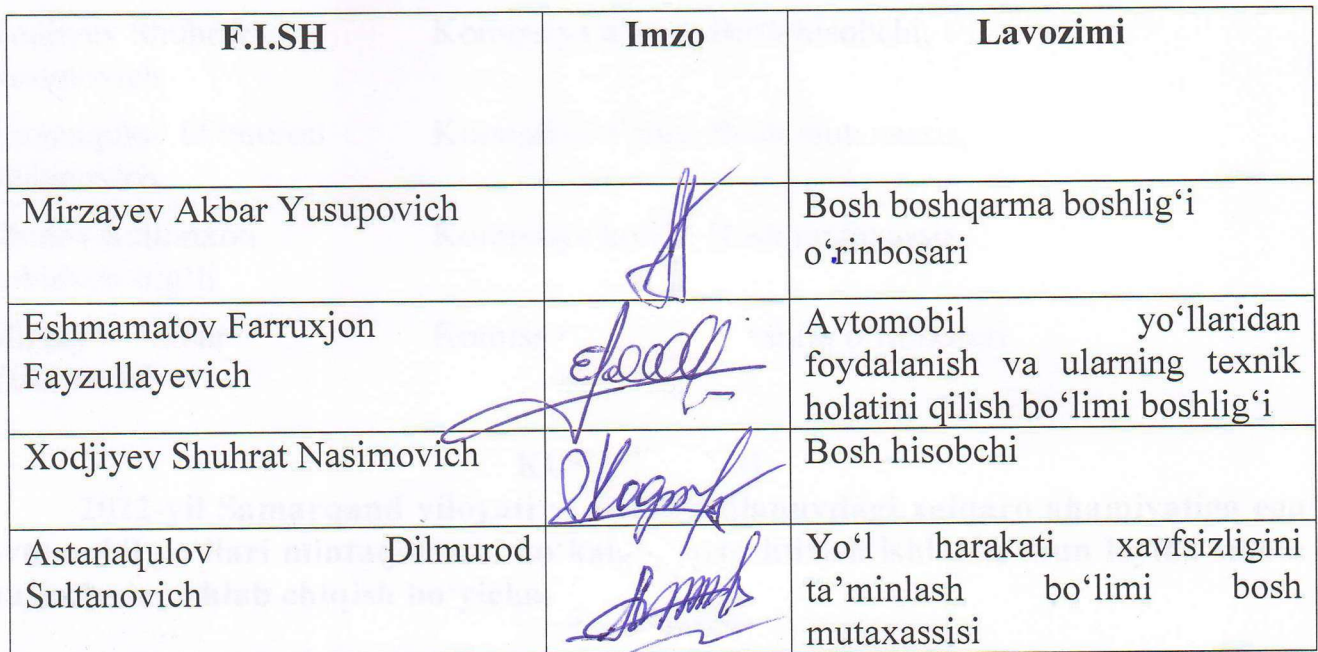 F.I.SH Imzo Lavozimi
Mirzayev Akbar Yusupovich
Bosh boshqarma boshlig‘i
o‘rinbosari
Eshmamatov Farruxjon
Fayzullayevich
Avtomobil yo‘llaridan
foydalanish va ularning texnik
holatini qilish bo‘limi boshlig‘i
Xodjiyev Shuhrat Nasimovich
Bosh hisobchi
Astanaqulov Dilmurod
Sultanovich
Yo‘l harakati xavfsizligini
ta’minlash bo‘limi bosh
mutaxassisi